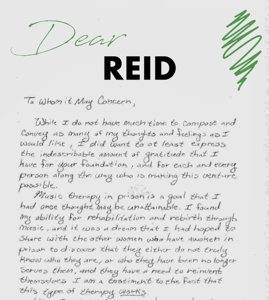 Dear
REID
To Whom it May Concern,
While I do not have much time to compose and
convey as many of my thoughts and feelings as I
would like, I did want to at least express
the indescribable amount of gratitude that I
have for your foundation, and for each and every
person along the way who is making this venture
possible.
Music therapy in prison is a goal that I
had once thought may be unattainable. I found
my ability for rehabilitation and rebirth through
music, and it was a dream that I had hoped to
share with the other women who have awoken in
prison to discover that they either do not truly
know who they are, or who they have been no longer
serves them, and they have a need to reinvent
themselves. I am a testament to the fact that
this type of therapy works.